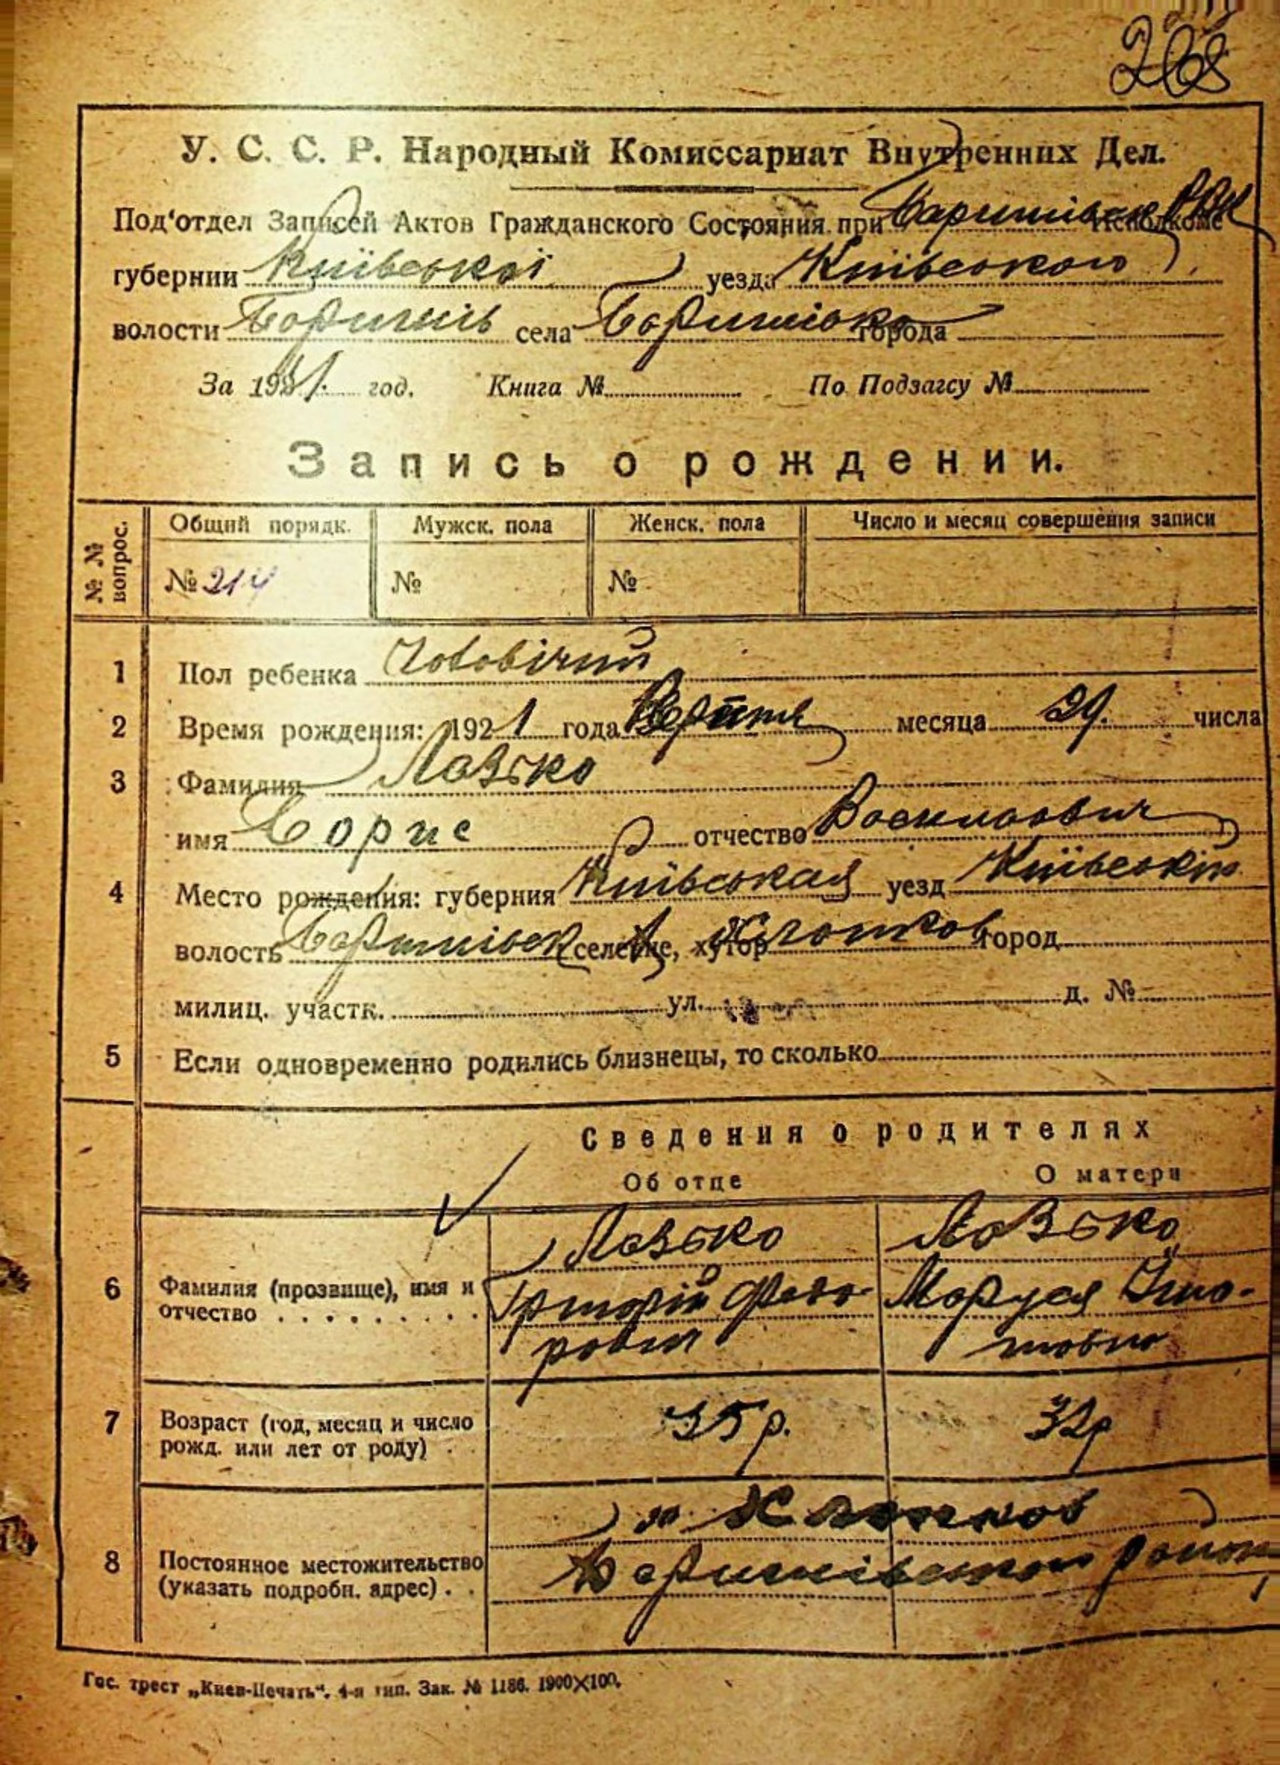 268
У. С. С. Р. Народный Комиссариат Внутренних Дел.
Под'отдел Записей Актов Гражданского Состояния при Исполкоме
губернии Київської уезда Київського
волости села города
За 1921 год. Книга № По Подзагсу №
Запись о рождении.
№ № вопрос. Общий порядк. Мужск. пола Женск. пола Число и месяц совершения записи
№ 214 № №
1 Пол ребенка Чоловічий
2 Время рождения: 1921 года месяца 29. числа
3 Фамилия Лазько
имя Борис отчество
4 Место рождения: губерния Київськая уезд Київський
волость селение, хутор город
милиц. участк. ул. д. №
5 Если одновременно родились близнецы, то сколько
Сведения о родителях
Об отце О матери
Лазько Лазько
6 Фамилия (прозвище), имя и отчество Федо- Маруся
рович
7 Возраст (год, месяц и число рожд. или лет от роду) 35 р. 32 р
8 Постоянное местожительство (указать подробн. адрес)
Гос. трест „Киев-Печать“. 4-я тип. Зак. № 1186. 1900×100.